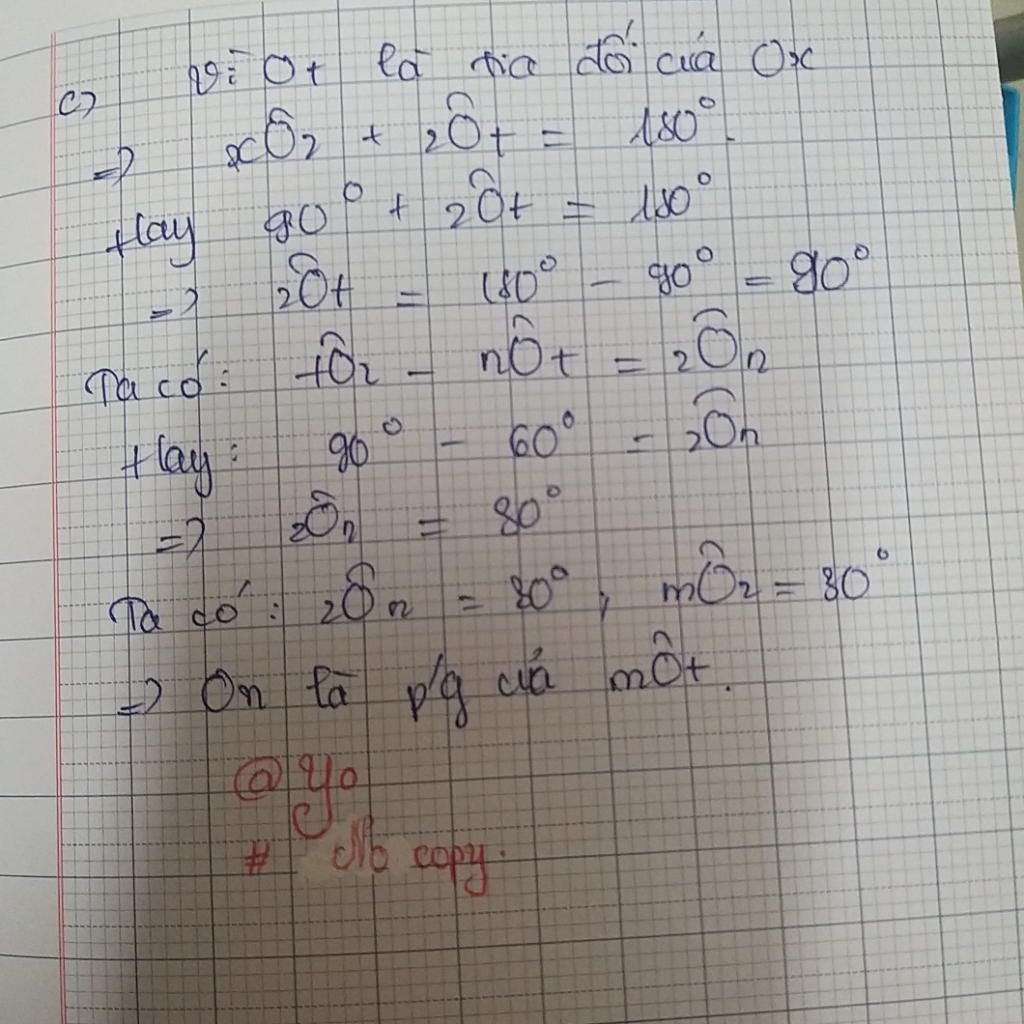 c) Vì Ot là tia đối của Ox
=> xÔz + zÔt = 180°.
thay 90° + zÔt = 180°
=> zÔt = 180° - 90° = 90°
Ta có: tÔz - nÔt = zÔn
thay: 90° - 60° = zÔn
=> zÔn = 30°
Ta có: zÔn = 30°, mÔz = 30°
=> On là p/g của mÔt.
@ Yo
# No copy.